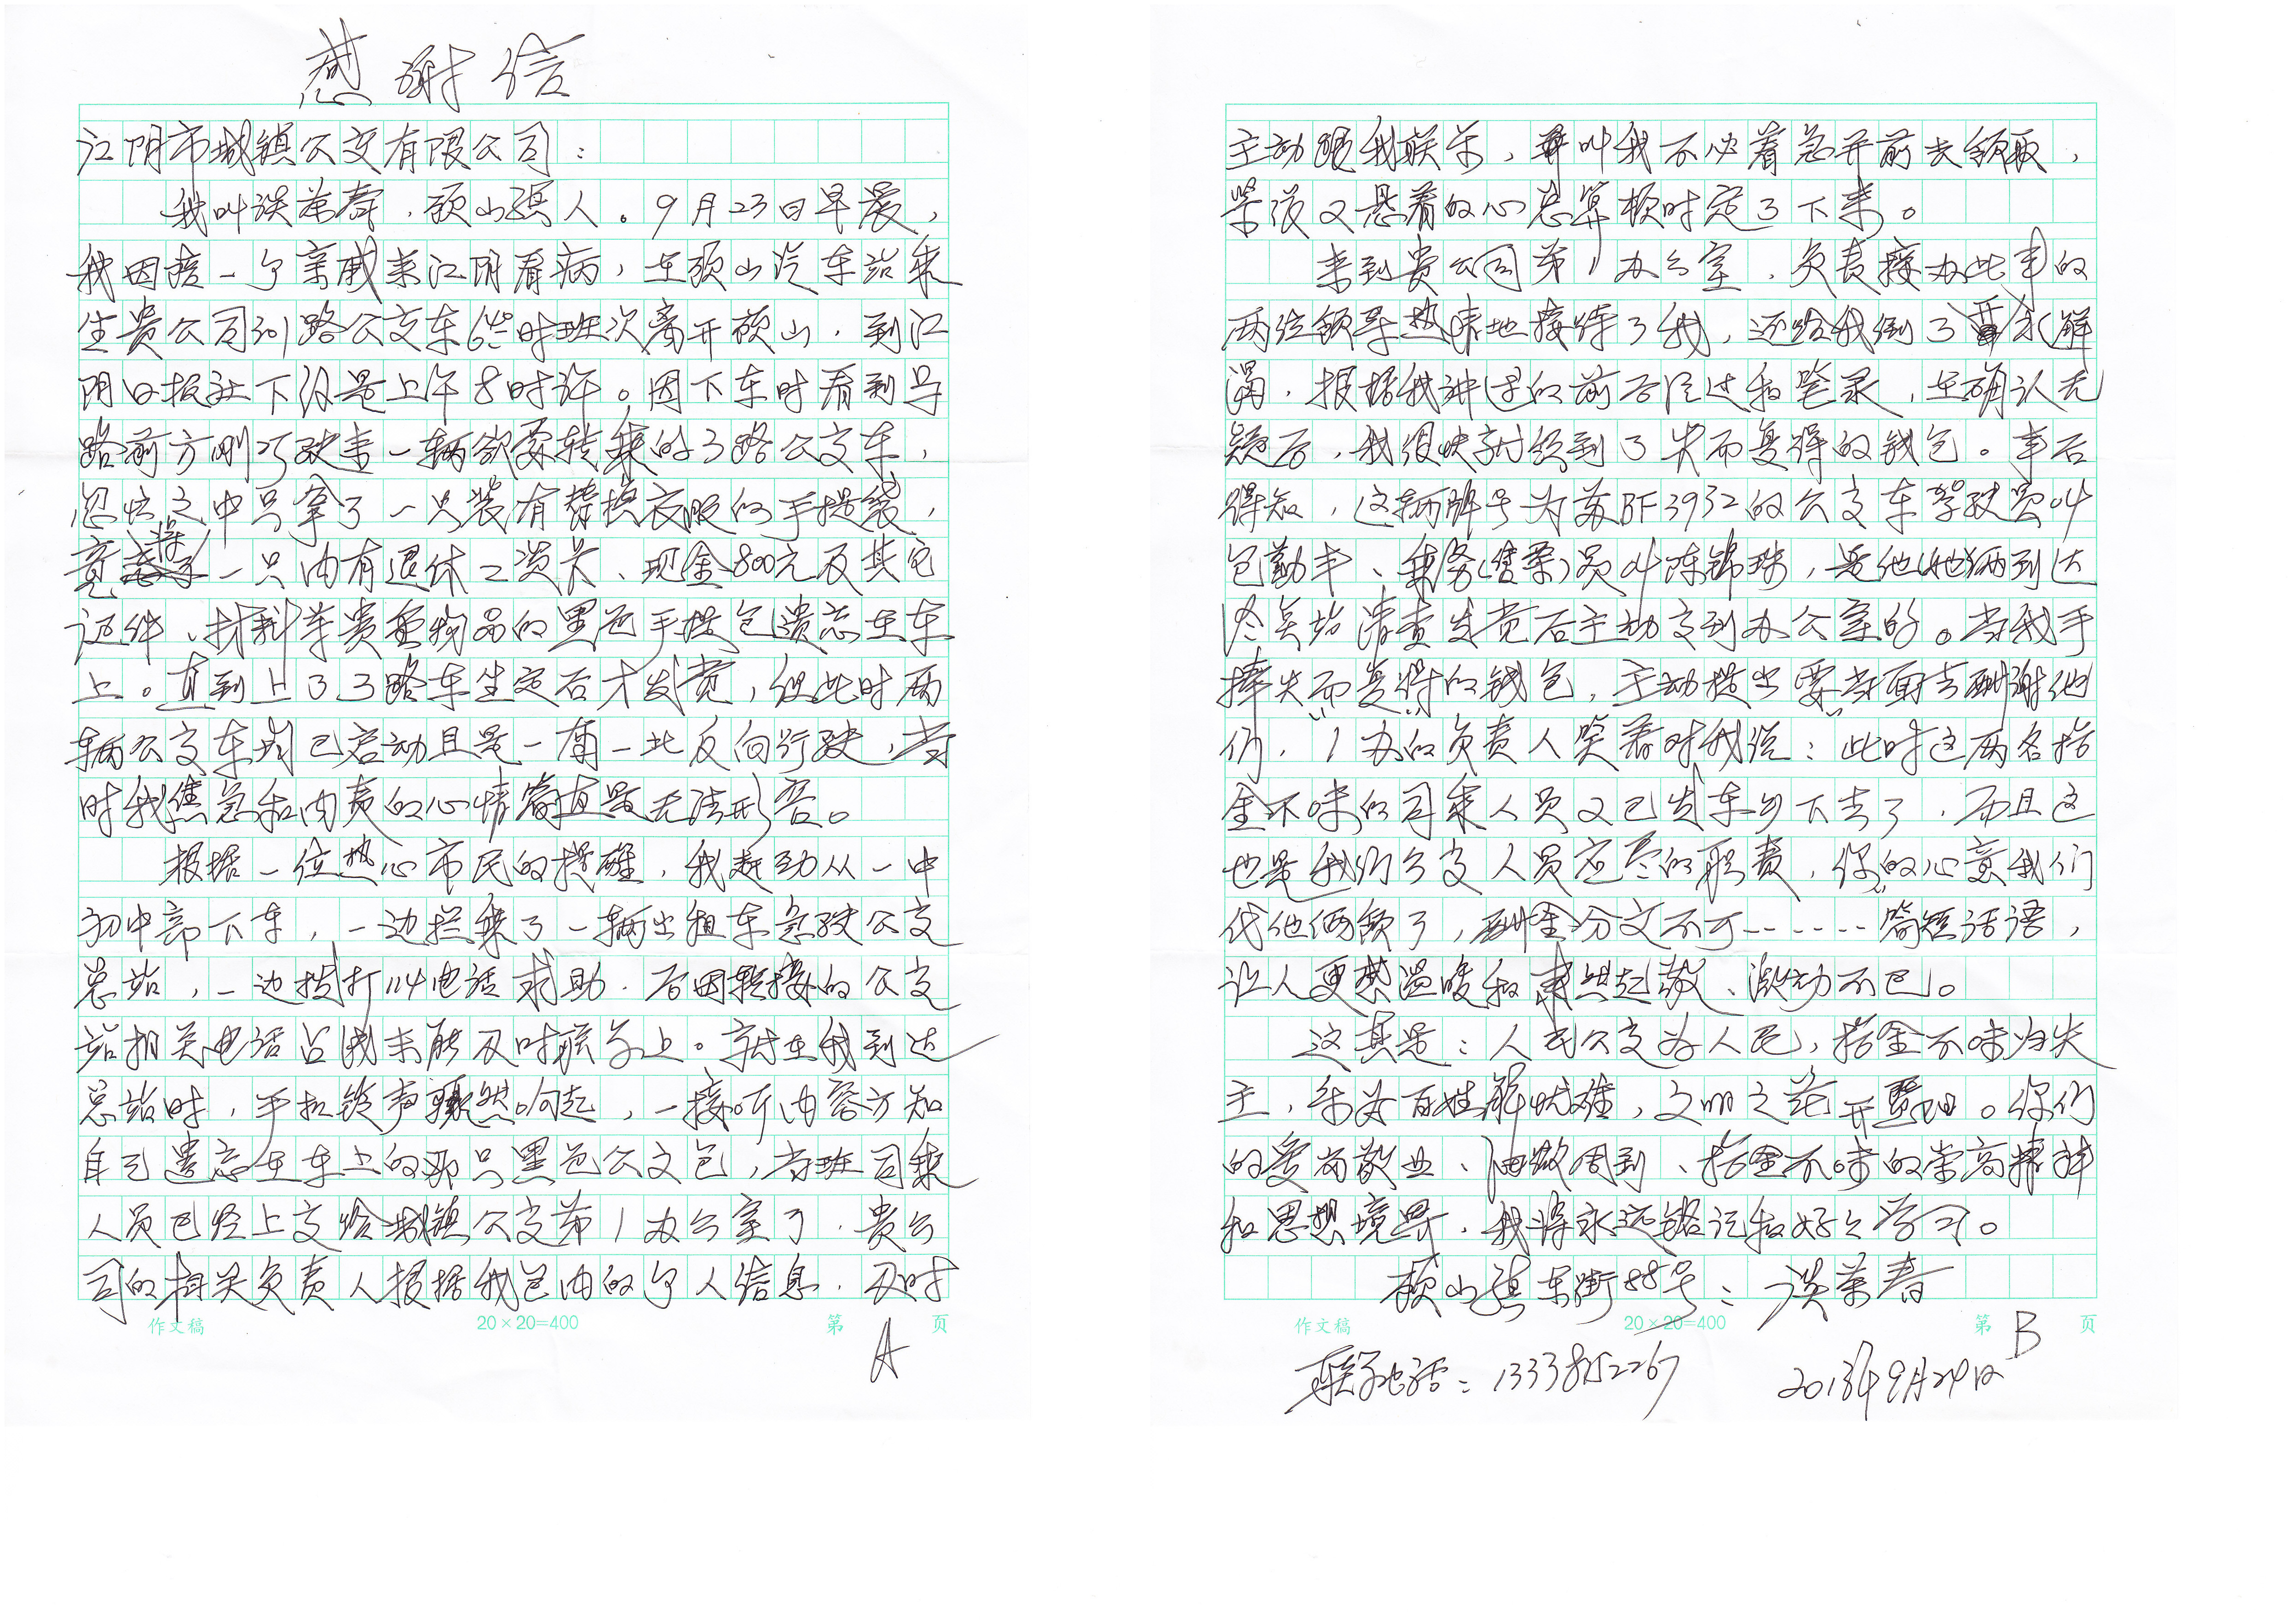 感谢信
江阴市城镇公交有限公司：
我叫谈荣春，顾山镇人。9月23日早晨，
我因陪一个亲戚来江阴看病，在顾山汽车站乘
坐贵公司301路公交车6时班次离开顾山，到江
阴日报社下伩是上午8时许。因下车时看到马
路前方刚巧驶来一辆欲要转乘的3路公交车，
忽忙之中只拿了一只装有替换衣服的手提袋，
竟将一只内有退休工资卡、现金800元及其它
证件、材料等贵重物品的黑色手提包遗忘在车
上。直到上了3路车坐定后才发觉，但此时两
辆公交车均已启动且是一南一北反向行驶，当
时我焦急和内责的心情简直是无法形容。
根据一位热心市民的提醒，我赶劲从一中
初中部下车，一边拦乘了一辆出租车急驶公交
总站，一边拨打114电话求助，后因转接的公交
站相关电话占线未能及时联系上。就在我到达
总站时，手机铃声骤然响起，一接听内容方知
自己遗忘在车上的那只黑色公文包，当班司乘
人员已经上交给城镇公交第1办公室了，贵公
司的相关负责人根据我包内的个人信息，及时
作文稿 20×20=400 第 页
A
主动跟我联系，并叫我不必着急并前去领取，
紧张又悬着的心总算顿时定了下来。
来到贵公司第1办公室，负责接办此事的
两位领导热情地接待了我，还给我倒了水解
渴，根据我讲述的前后经过和笔录，在确认无
疑后，我很快就领到了失而复得的钱包。事后
得知，这辆牌号为苏BF3932的公交车驾驶员叫
包勤丰、乘务(售票)员叫陈锦珠，是他(她)俩到达
终点站清查发觉后主动交到办公室的。当我手
捧失而复得的钱包，主动提出要当面去酬谢他
们，“1办”的负责人笑着对我说：“此时这两名拾
金不昧的司乘人员又已发车乡下去了，而且这
也是我们公交人员应尽的职责，你的心意我们
代他俩领了，酬金分文不可……”简短话语，
让人更感温暖和肃然起敬、激动不已。
这真是：人民公交为人民，拾金不昧归失
主，乐为百姓解忧难，文明之花开暨阳。你们
的爱岗敬业、细微周到、拾金不昧的崇高精神
和思想境界，我将永远铭记和好好学习。
顾山镇东街88号：谈荣春
作文稿 20×20=400 第 页
B
联系电话：13338152267 2013年9月24日